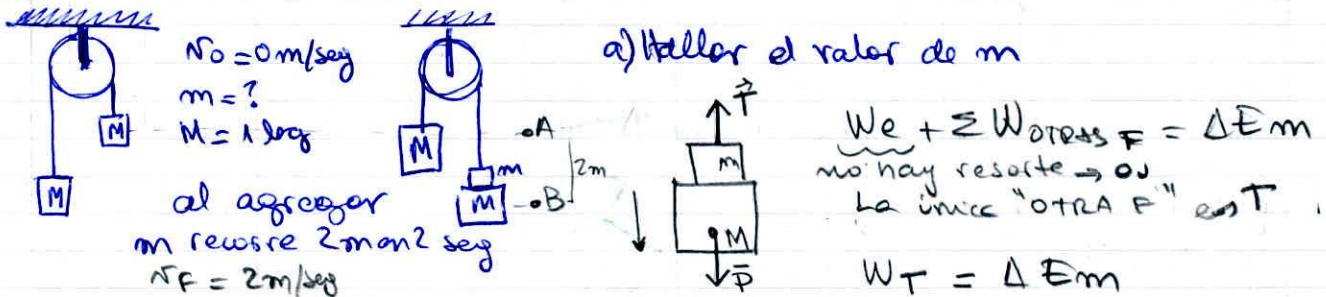 v₀ = 0 m/seg
m = ?
M = 1 kg
M
M
al agregar
m recorre 2m en 2 seg
v_F = 2 m/seg
M
m
M
A
2m
B
a) Hallar el valor de m
T
m
M
P
We + Σ W OTRAS F = ΔEm
no hay resorte → 0J
La única "OTRA F" es T
W_T = ΔEm